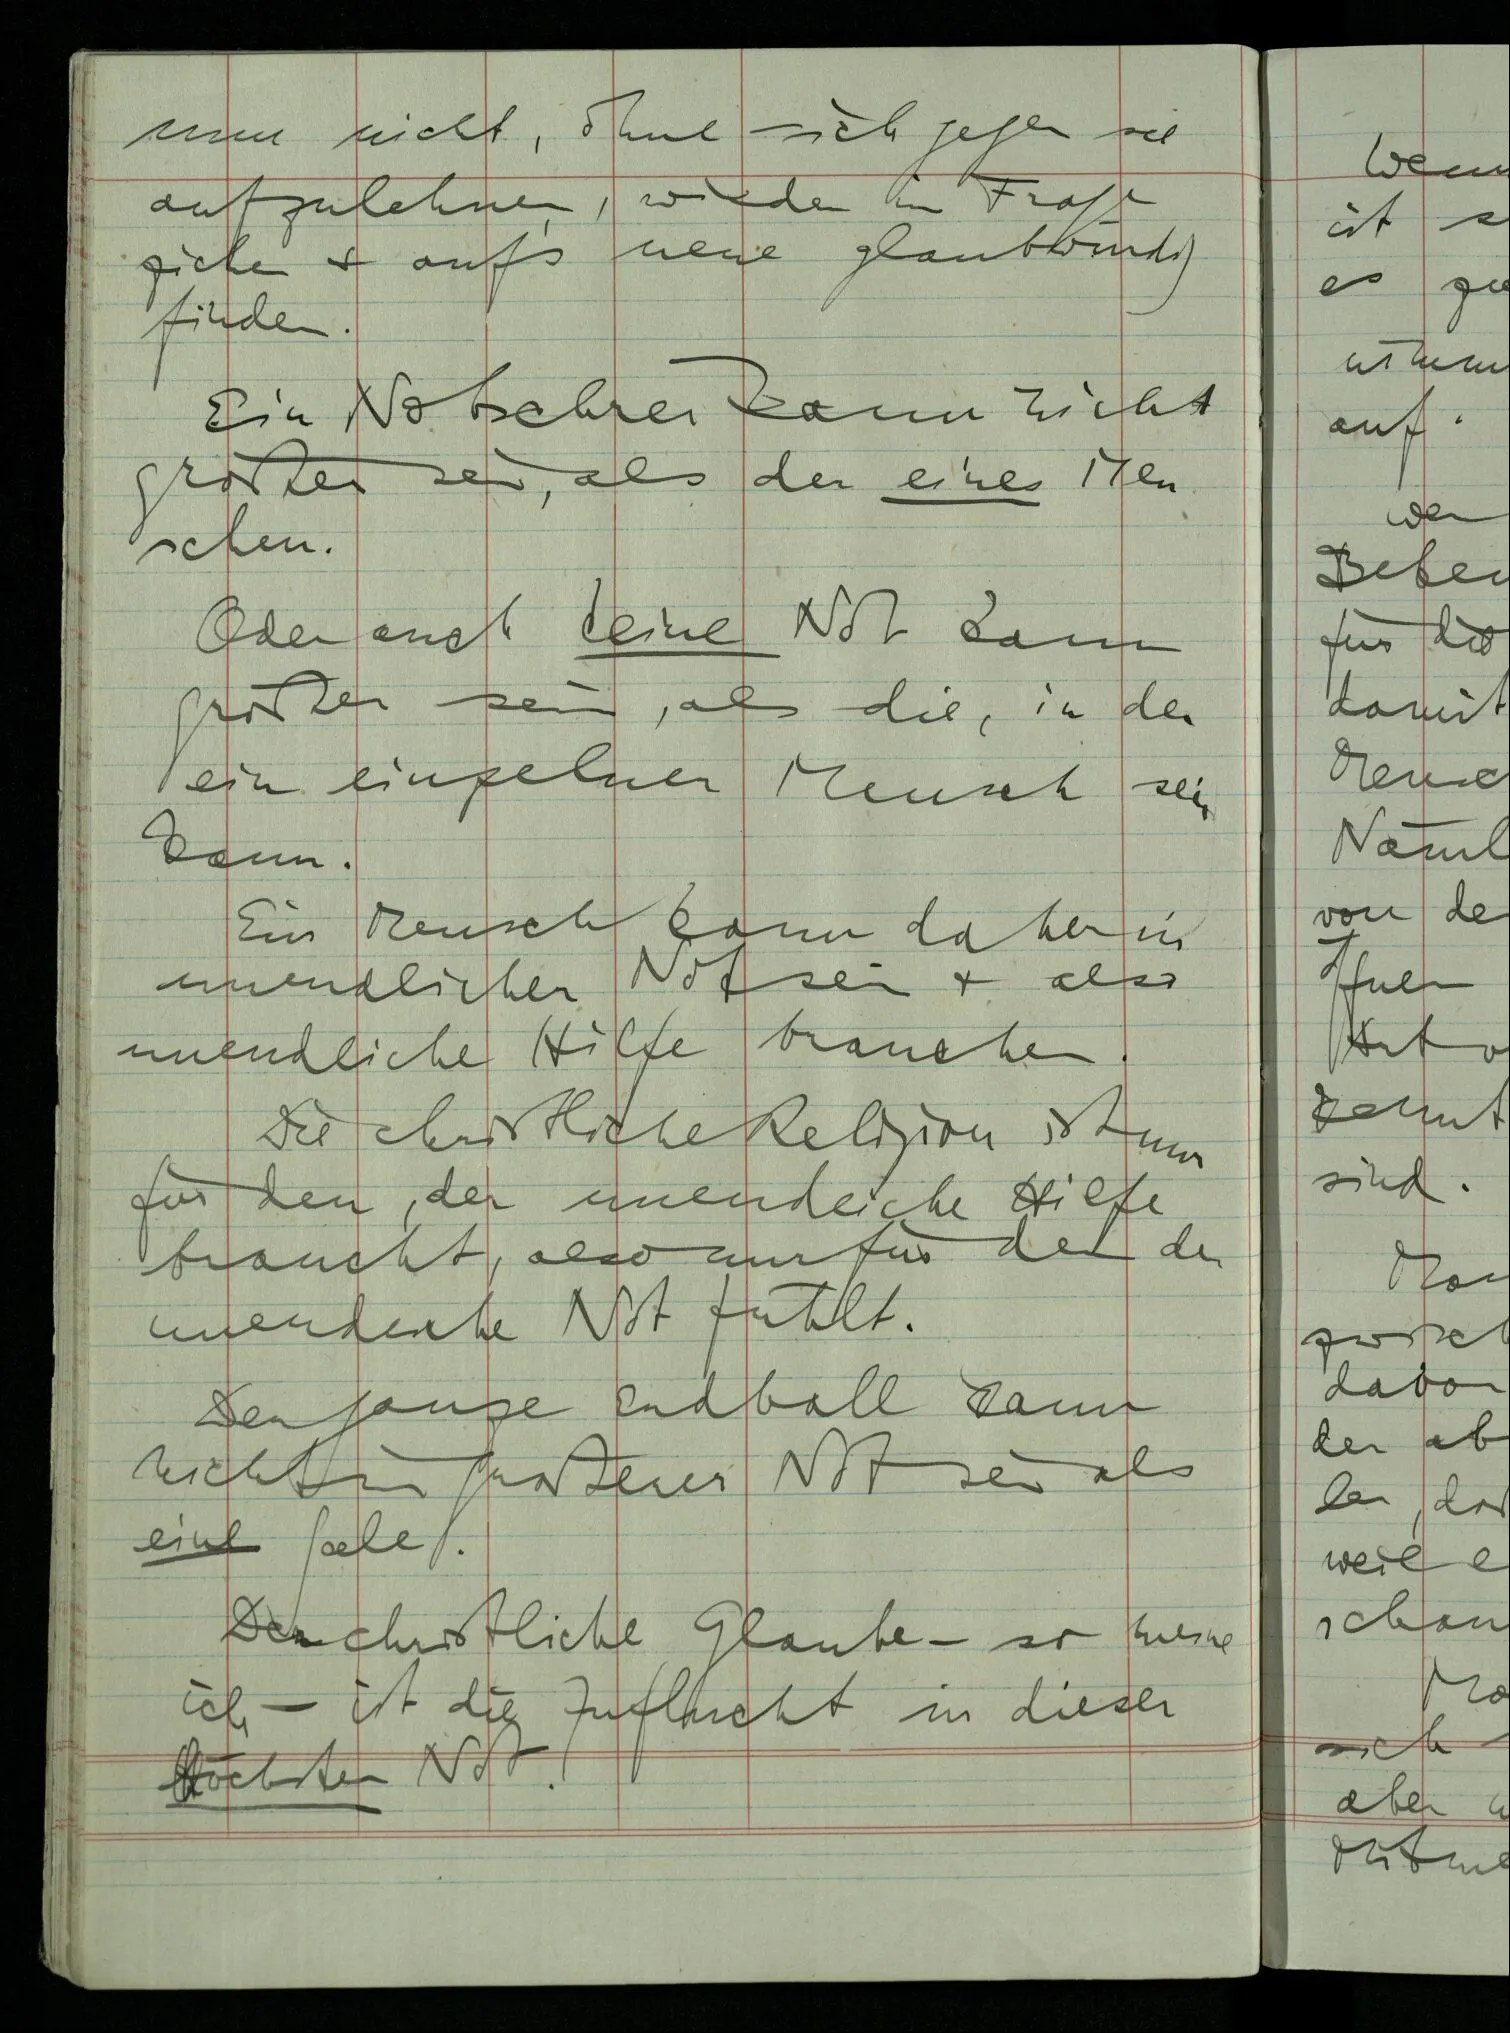 nun nicht, ohne sich gegen sie
aufzulehnen, wieder in Frage
ziehen & auf's neue glaubwürdig
finden.
Ein Notschrei kann nicht
größer sein, als der eines Men
schen.
Oder auch keine Not kann
größer sein, als die, in der
ein einzelner Mensch sein
kann.
Ein Mensch kann daher in
unendlicher Not sein & also
unendliche Hilfe brauchen.
Die christliche Religion ist nur
für den, der unendliche Hilfe
braucht, also nur für den der
unendliche Not fühlt.
Der ganze Erdball kann
nicht in größerer Not sein als
eine Seele.
Der christliche Glaube – so meine
ich – ist die Zuflucht in dieser
höchsten Not.
ist
es
auf.
wer
für die
damit
von de
sind.
der ab
weil
aber